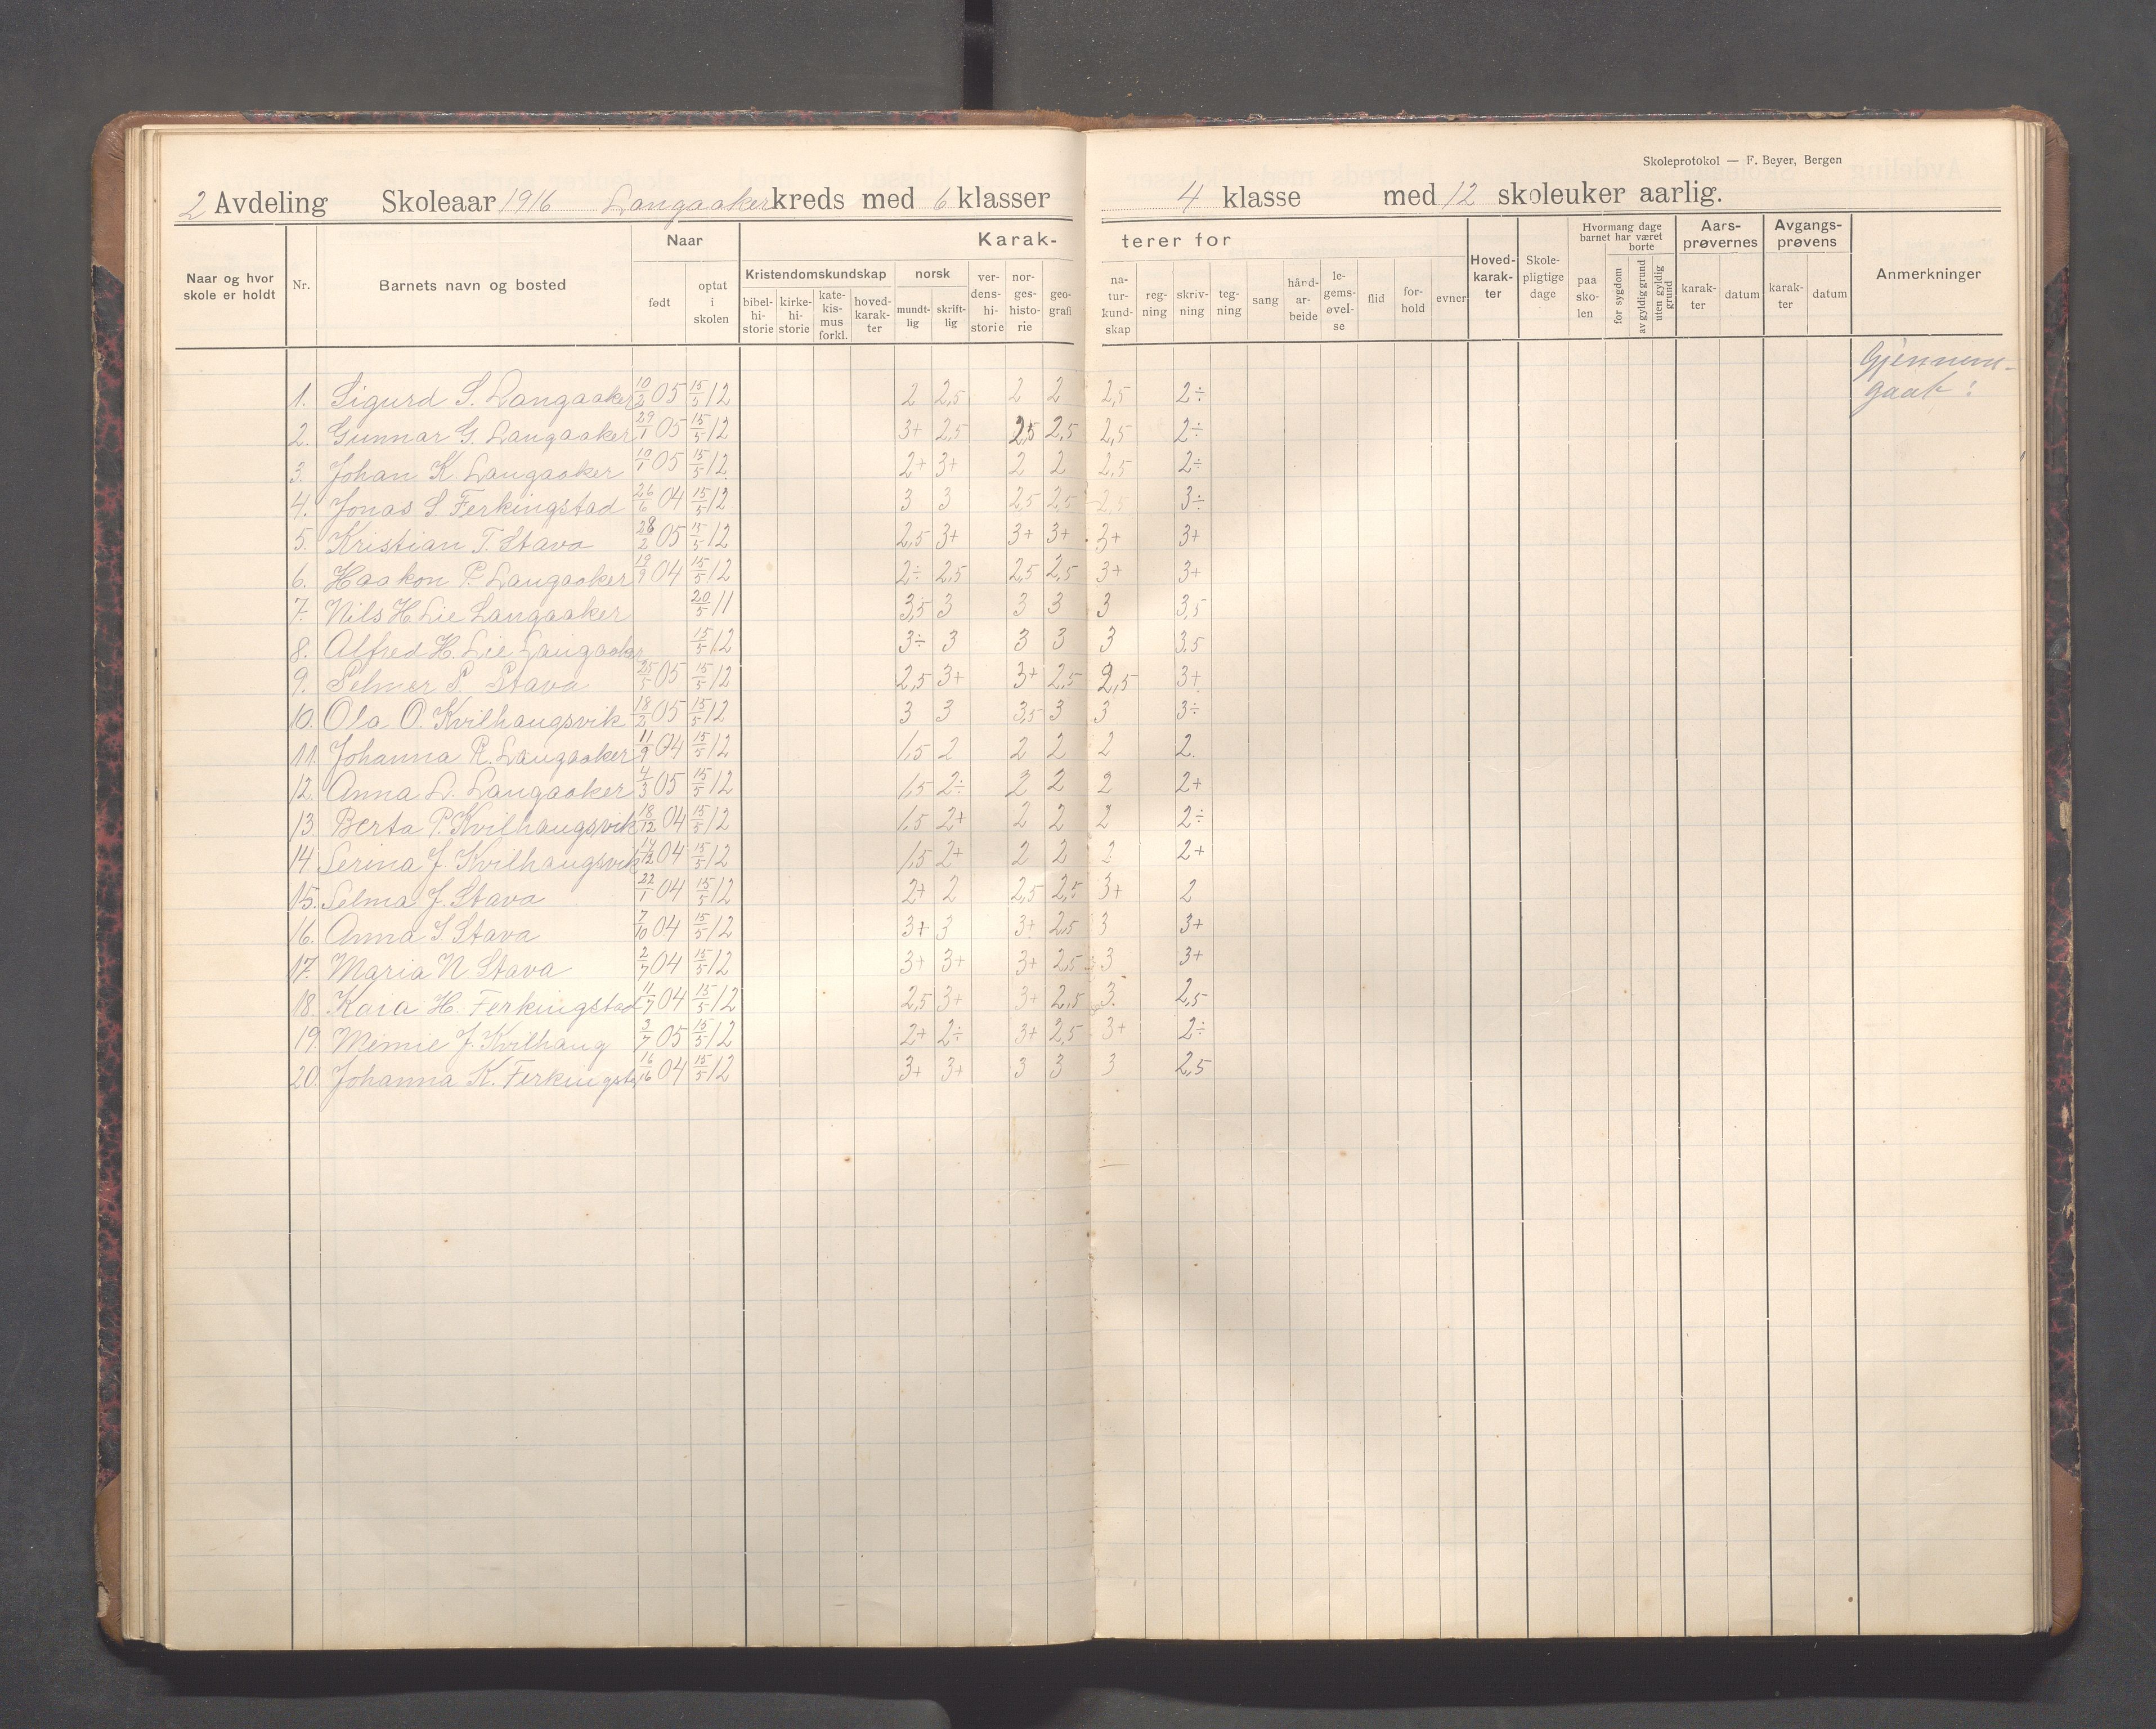 Skoleprotokol — F. Beyer, Bergen
2 Avdeling Skoleaar 1916 Langaaker kreds med 6 klasser 4 klasse med 12 skoleuker aarlig.
Naar og hvor skole er holdt Nr. Barnets navn og bosted Naar født optat i skolen Karakterer for Kristendomskundskap bibelhistorie kirkehistorie katekismus forkl. hovedkarakter norsk mundtlig skriftlig verdenshistorie norgeshistorie geografi naturkundskap regning skrivning tegning sang håndarbeide legemsøvelse flid forhold evner Hovedkarakter Skolepligtige dage Hvormang dage barnet har været borte paa skolen for sygdom av gyldig grund uten gyldig grund Aarsprøvernes karakter datum Avgangsprøvens karakter datum Anmerkninger
Gjennem-
gaat:
1. Sigurd S. Langaaker 10/2 05 15/5 12 2 2,5 2 2 2,5 2÷
2. Gunnar G. Langaaker 29/1 05 15/5 12 3+ 2,5 2,5 2,5 2,5 2÷
3. Johan K. Langaaker 10/1 05 15/5 12 2+ 3+ 2 2 2,5 2÷
4. Jonas S. Ferkingstad 26/6 04 15/5 12 3 3 2,5 2,5 2,5 3÷
5. Kristian T. Stava 28/2 05 15/5 12 2,5 3+ 3+ 3+ 3+ 3+
6. Haakon P. Langaaker 19/9 04 15/5 12 2÷ 2,5 2,5 2,5 3+ 3+
7. Nils H. Lie Langaaker 20/5 11 3,5 3 3 3 3 3,5
8. Alfred H. Lie Langaaker 15/5 12 3÷ 3 3 3 3 3,5
9. Selmer P. Stava 25/5 05 15/5 12 2,5 3+ 3+ 2,5 2,5 3+
10. Ola O. Kvilhaugsvik 18/2 05 15/5 12 3 3 3,5 3 3 3÷
11. Johanna R. Langaaker 11/9 04 15/5 12 1,5 2 2 2 2 2.
12. Anna L. Langaaker 4/3 05 15/5 12 1,5 2÷ 2 2 2 2+
13 Berta P. Kvilhaugsvik 18/12 04 15/5 12 1,5 2+ 2 2 2 2÷
14 Serina J. Kvilhaugsvik 14/12 04 15/5 12 1,5 2+ 2 2 2 2+
15. Selma J. Stava 22/1 04 15/5 12 2+ 2 2,5 2,5 3+ 2
16. Anna S. Stava 7/10 04 15/5 12 3+ 3 3+ 2,5 3 3+
17. Maria N. Stava 2/7 04 15/5 12 3+ 3+ 3+ 2,5 3 3+
18. Kaia H. Ferkingstad 11/7 04 15/5 12 2,5 3+ 3+ 2,5 3 2,5
19. Mimie J. Kvilhaug 3/7 05 15/5 12 2+ 2÷ 3+ 2,5 3+ 2÷
20. Johanna K. Ferkingstad 16/16 04 15/5 12 3+ 3+ 3 3 3 2,5